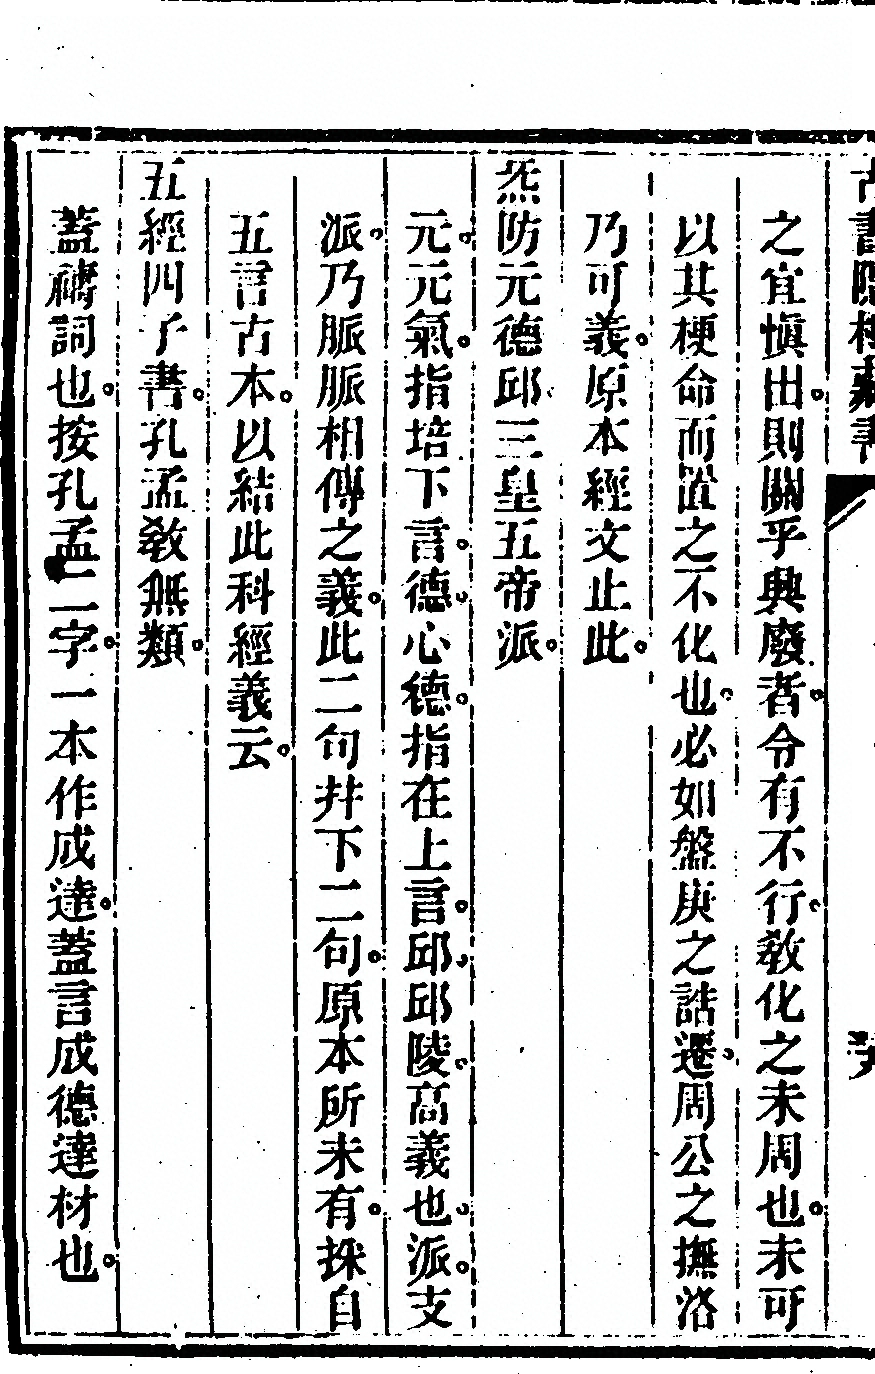 之宜愼出則關乎興廢者令有不行敎化之未周也未可
以其梗命而置之不化也必如盤庚之誥遷周公之撫洛
乃可義原本經文止此
炁防元德邱三皇五帝派
元元氣指培下言德心德指在上言邱邱陵高義也派支
派乃脈脈相傳之義此二句幷下二句原本所未有採自
五言古本以結此科經義云
五經四子書孔孟敎無類
蓋禱詞也按孔孟二字一本作成達蓋言成德達材也